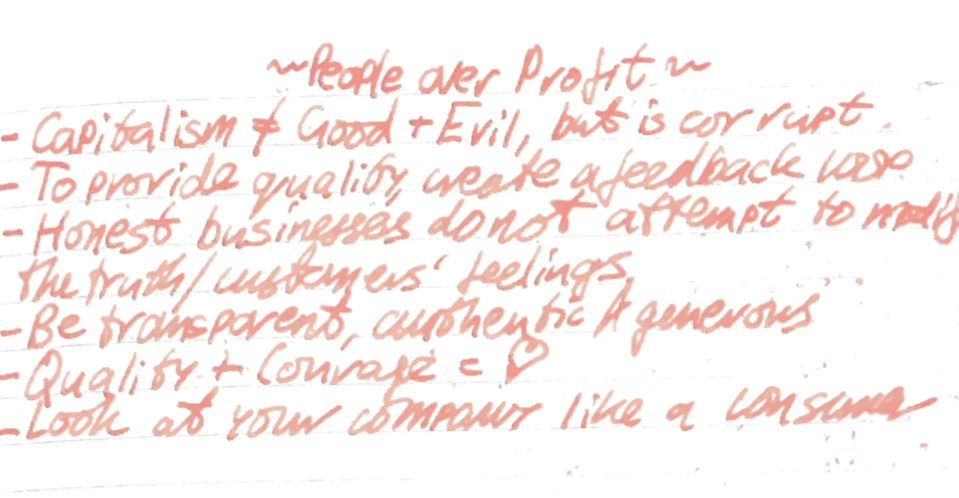 ~People over Profit~
- Capitalism ≠ Good + Evil, but is corrupt.
- To provide quality, create a feedback loop.
- Honest businesses do not attempt to modify
the truth/customers' feelings.
- Be transparent, authentic & generous
- Quality + Courage = ♡
- Look at your company like a consumer